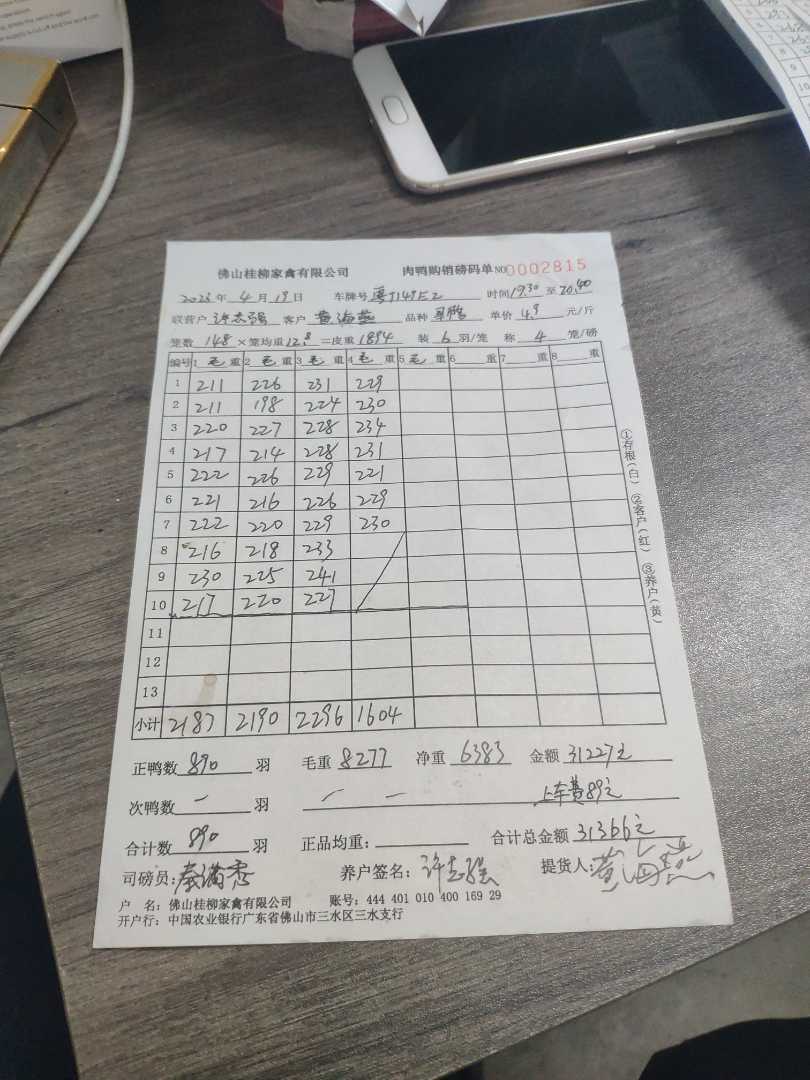 佛山桂柳家禽有限公司 肉鸭购销磅码单 NO 0002815
2023 年 4 月 19 日 车牌号 粤J149E2 时间 19.30 至 20.40
联营户 许志强 客户 黄海燕 品种 单价 4.9 元/斤
笼数 148 ×笼均重 12.8 =皮重 1894 装 6 羽/笼 称 4 笼/磅
编号 1 毛 重 2 毛 重 3 毛 重 4 毛 重 5 毛 重 6 重 7 重 8 重
1 211 226 231 229
2 211 198 224 230
3 220 227 228 234
4 217 214 228 231
5 222 226 229 221
6 221 216 226 229
7 222 220 229 230
8 216 218 233
9 230 225 241
10 217 220 227
11
12
13
小计 2187 2190 2296 1604
①存根(白) ②客户(红) ③养户(黄)
正鸭数 890 羽 毛重 8277 净重 6383 金额 31227元
次鸭数 一 羽 上车费89元
合计数 890 羽 正品均重: 合计总金额 31366元
司磅员: 秦满秀 养户签名: 许志强 提货人: 黄海燕
户 名: 佛山桂柳家禽有限公司 账号: 444 401 010 400 169 29
开户行: 中国农业银行广东省佛山市三水区三水支行